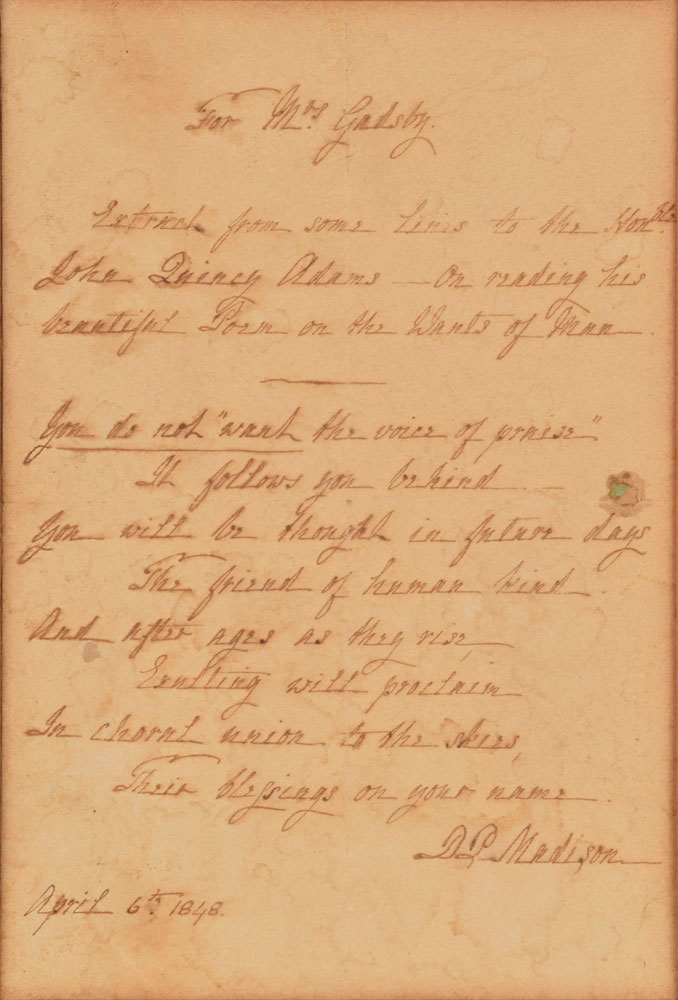 For Mrs Gadsby.
Extract from some Lines to the Honble
John Quincy Adams — On reading his
beautiful Poem on the Wants of Man
You do not "want the voice of praise"
It follows you behind
You will be thought in future days
The friend of human kind.
And after ages as they rise
Exulting will proclaim
In choral union to the skies,
Their blessings on your name.
D P Madison
April 6th 1848.